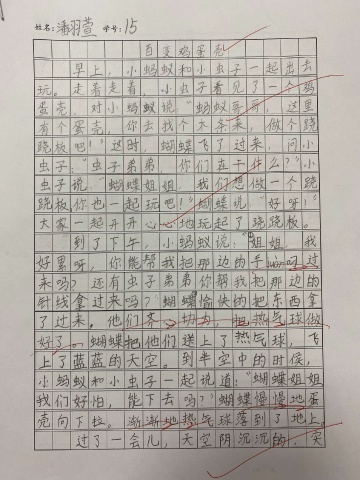 姓名：潘羽萱 学号：15
百变鸡蛋壳
早上，小蚂蚁和小虫子一起出去
玩。走着走着，小虫子看见了一个鸡
蛋壳，对小蚂蚁说“蚂蚁哥哥，这里
有个蛋壳，你去找个木条来，做个跷
跷板吧！”这时，蝴蝶飞了过来，问小
虫子：“虫子弟弟，你们在干什么？”小
虫子说“蝴蝶姐姐，我们想做一个跷
跷板你也一起玩吧！”蝴蝶说“好呀！”
大家一起开开心心地玩起了跷跷板。
到了下午，小蚂蚁说：“姐姐，我
好累呀，你能帮我把那边的手 过
来吗？还有虫子弟弟你帮我把那边的
针线拿过来吗？”蝴蝶愉快的把东西拿
了过来。他们齐心协力，把热气球做
好了。蝴蝶把他们送上了热气球，飞
上了蓝蓝的天空。到半空中的时候，
小蚂蚁和小虫子一起说道：“蝴蝶姐姐
我们好怕，能下去吗？”蝴蝶慢慢地蛋
壳向下拉。渐渐地热气球落到了地上。
过了一会儿，天空阴沉沉的，突